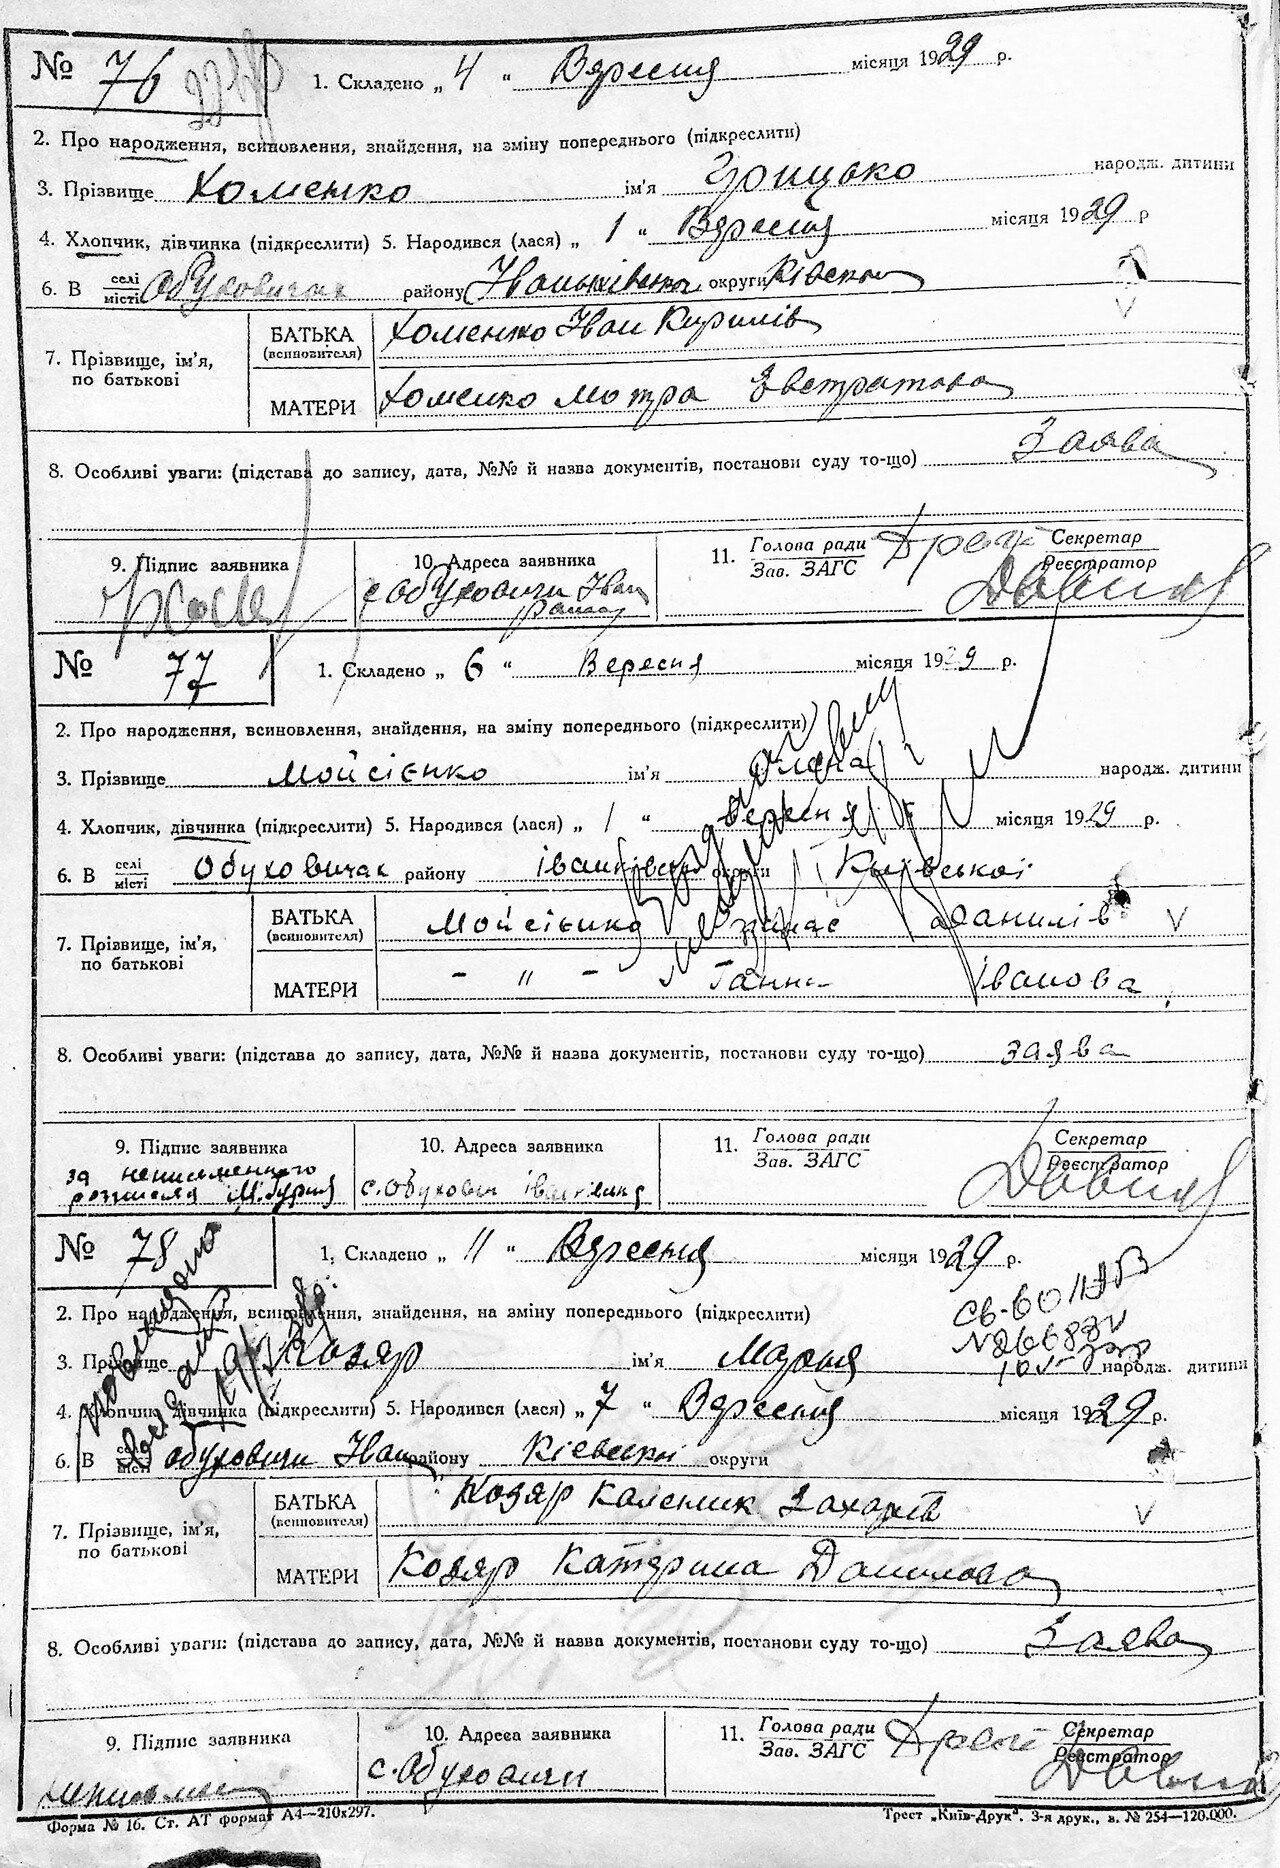 № 76
1. Складено „ 4 “ Вересня місяця 1929 р.
2. Про народження, всиновлення, знайдення, на зміну попереднього (підкреслити)
3. Прізвище Хоменко ім'я Грицько народж. дитини
4. Хлопчик, дівчинка (підкреслити) 5. Народився (лася) „ 1 “ Вересня місяця 1929 р
6. В селі місті Обуховичах району Іваньківськ округи Київськ
7. Прізвище, ім'я, по батькові
БАТЬКА (всиновителя) Хоменко Іван Кирилів
МАТЕРИ Хоменко Мотра Євстратова
8. Особливі уваги: (підстава до запису, дата, №№ й назва документів, постанови суду то-що) Заява
9. Підпис заявника
10. Адреса заявника
с Обуховичи Іван
району
11. Голова ради Зав. ЗАГС
Секретар Реєстратор
№ 77
1. Складено „ 6 “ Вересня місяця 1929 р.
2. Про народження, всиновлення, знайдення, на зміну попереднього (підкреслити)
3. Прізвище Мойсієнко ім'я Олена народж. дитини
4. Хлопчик, дівчинка (підкреслити) 5. Народився (лася) „ 1 “ вересня місяця 1929 р.
6. В селі місті Обуховичах району іваньківськ округи Київської
7. Прізвище, ім'я, по батькові
БАТЬКА (всиновителя) Мойсієнко Панас Данилів
МАТЕРИ - „ - Ганна іванова
8. Особливі уваги: (підстава до запису, дата, №№ й назва документів, постанови суду то-що) заява
9. Підпис заявника
за неписьменного
розписався
10. Адреса заявника
с. Обухович
11. Голова ради Зав. ЗАГС
Секретар Реєстратор
№ 78
1. Складено „ 11 “ Вересня місяця 1929 р.
2. Про народження, всиновлення, знайдення, на зміну попереднього (підкреслити)
3. Прізвище Козяр ім'я Марія народж. дитини
4. Хлопчик, дівчинка (підкреслити) 5. Народився (лася) „ 7 “ Вересня місяця 1929 р.
6. В селі місті Обуховичи Іван району Кіевської округи
7. Прізвище, ім'я, по батькові
БАТЬКА (всиновителя) Козяр Каленик Захарів
МАТЕРИ Козяр Катерина Данилова
8. Особливі уваги: (підстава до запису, дата, №№ й назва документів, постанови суду то-що) Заява
9. Підпис заявника
10. Адреса заявника
с. Обуховичи
11. Голова ради Зав. ЗАГС
Секретар Реєстратор
Форма № 16. Ст. АТ формат А4—210х297.
Трест „Київ-Друк“. 3-я друк., в. № 254—120.000.